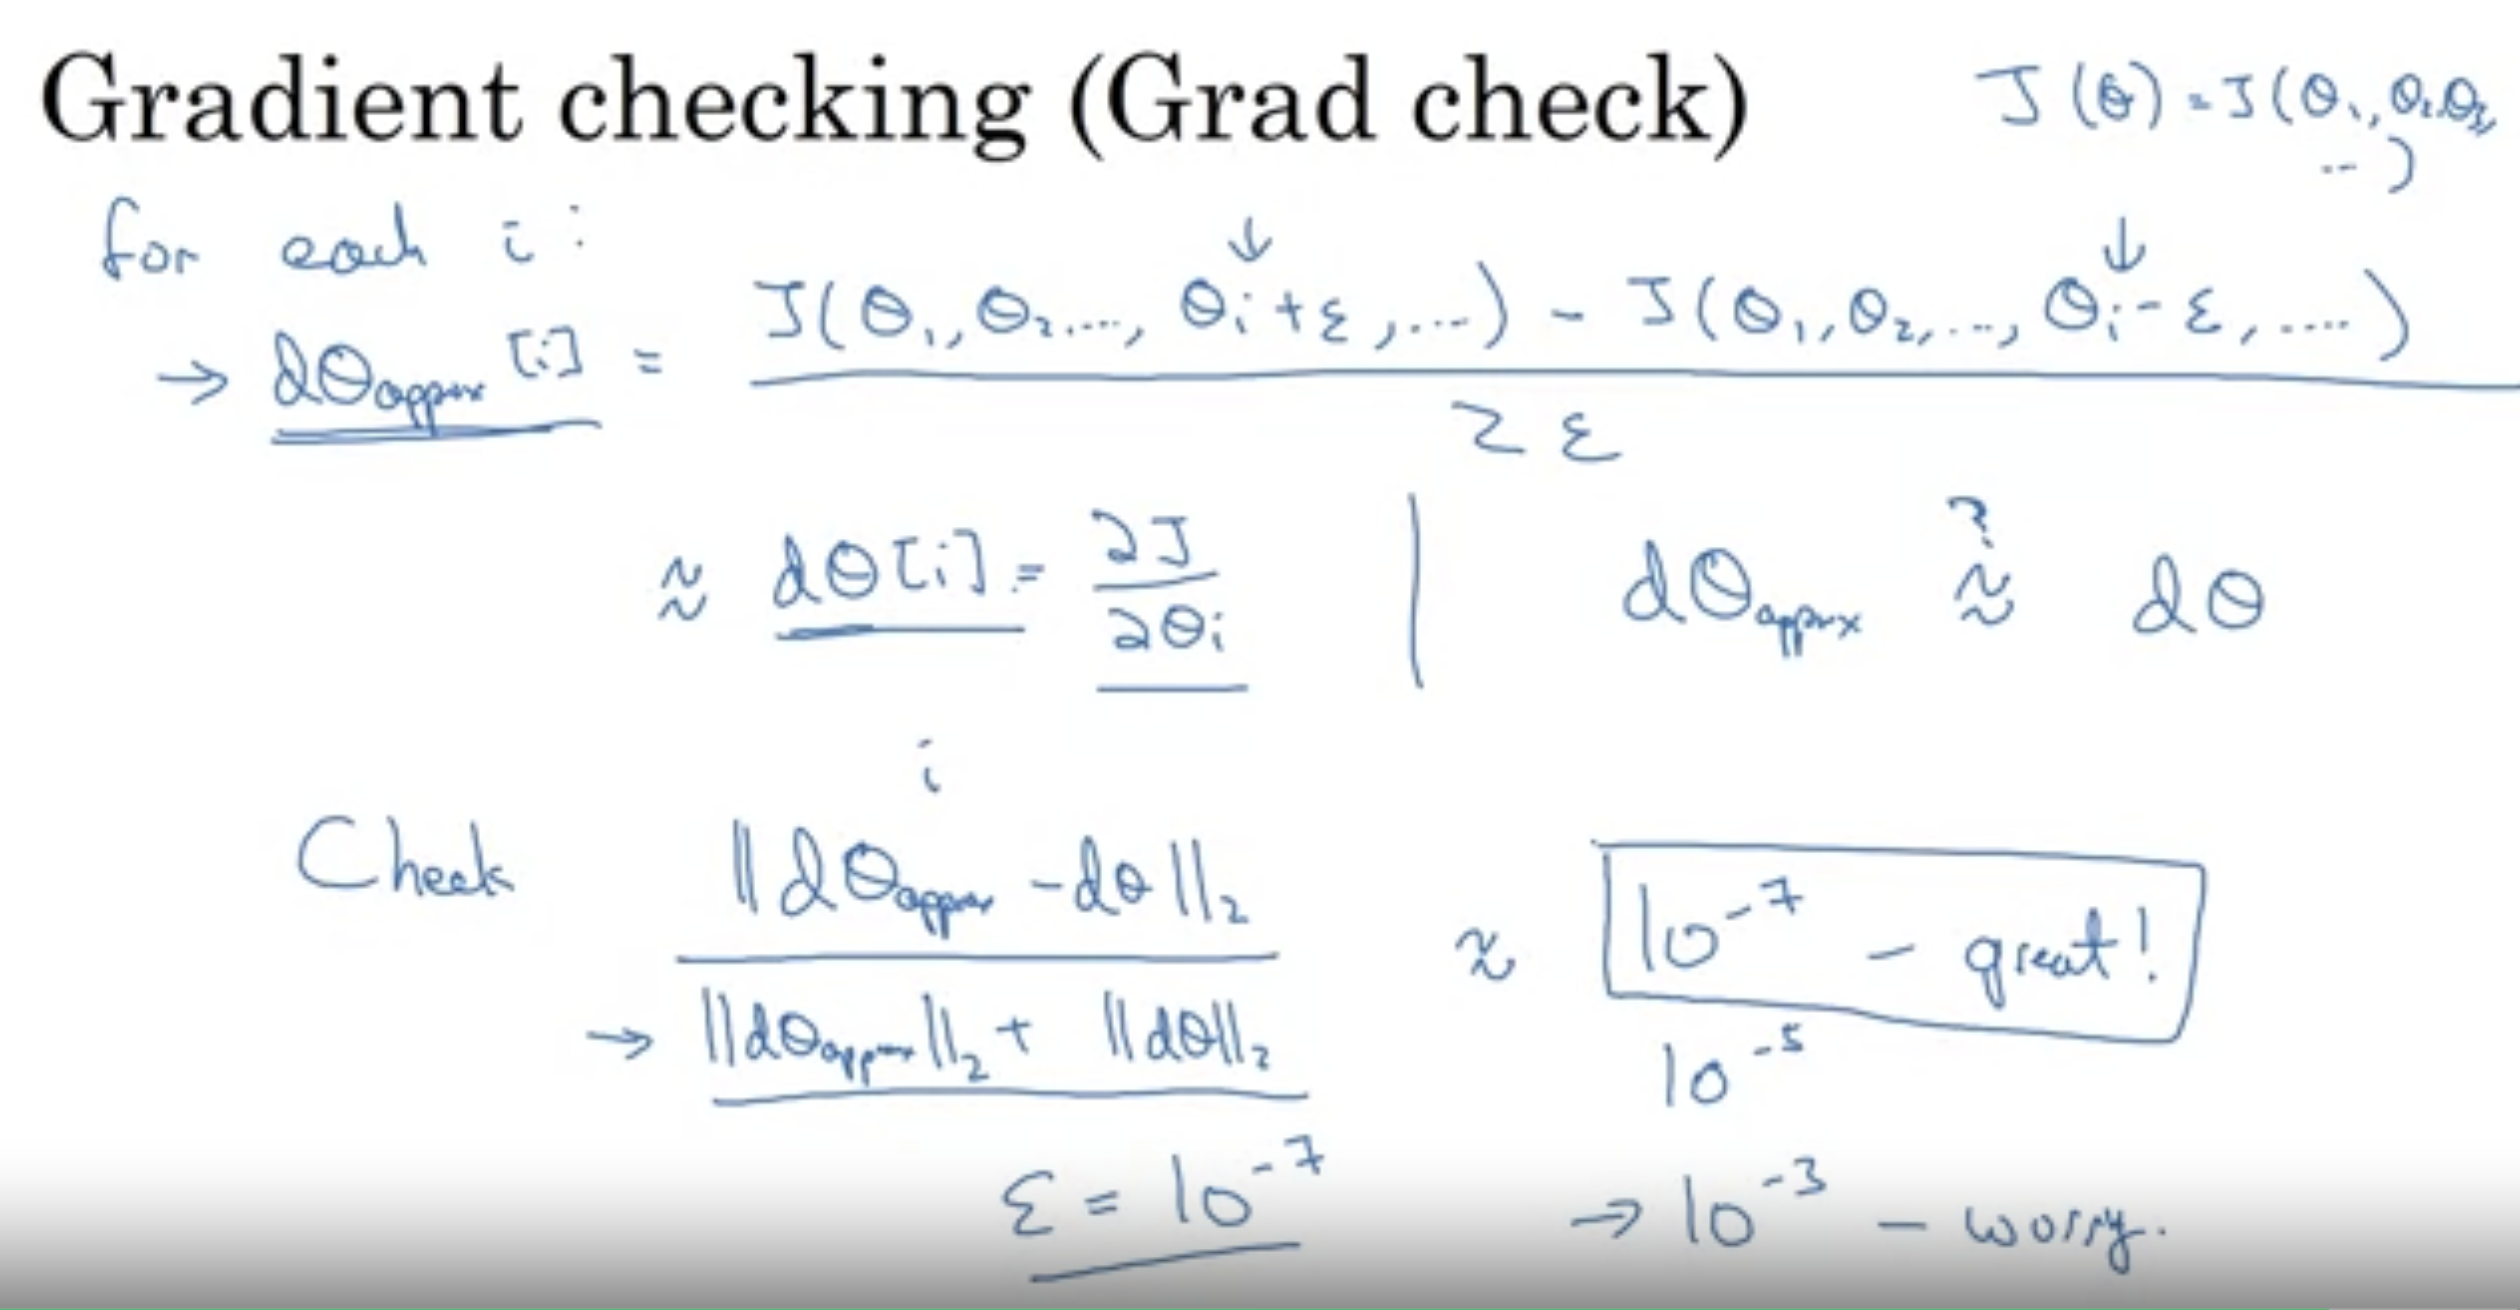 Gradient checking (Grad check)
J(θ) = J(θ₁, θ₂, θ₃, ...)
for each i:
→ dθapprox[i] = J(θ₁, θ₂, ..., θᵢ+ε, ...) - J(θ₁, θ₂, ..., θᵢ-ε, ...)
2ε
≈ dθ[i] = ∂J/∂θᵢ | dθapprox ≈? dθ
i
Check ||dθapprox - dθ||₂ ≈ 10⁻⁷ - great!
→ ||dθapprox||₂ + ||dθ||₂
10⁻⁵
ε = 10⁻⁷ → 10⁻³ - worry.